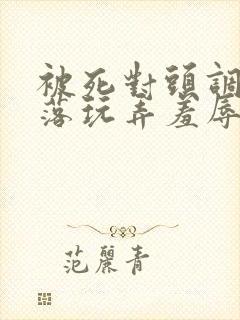 被死對頭調
落玩弄羞辱
范麗青